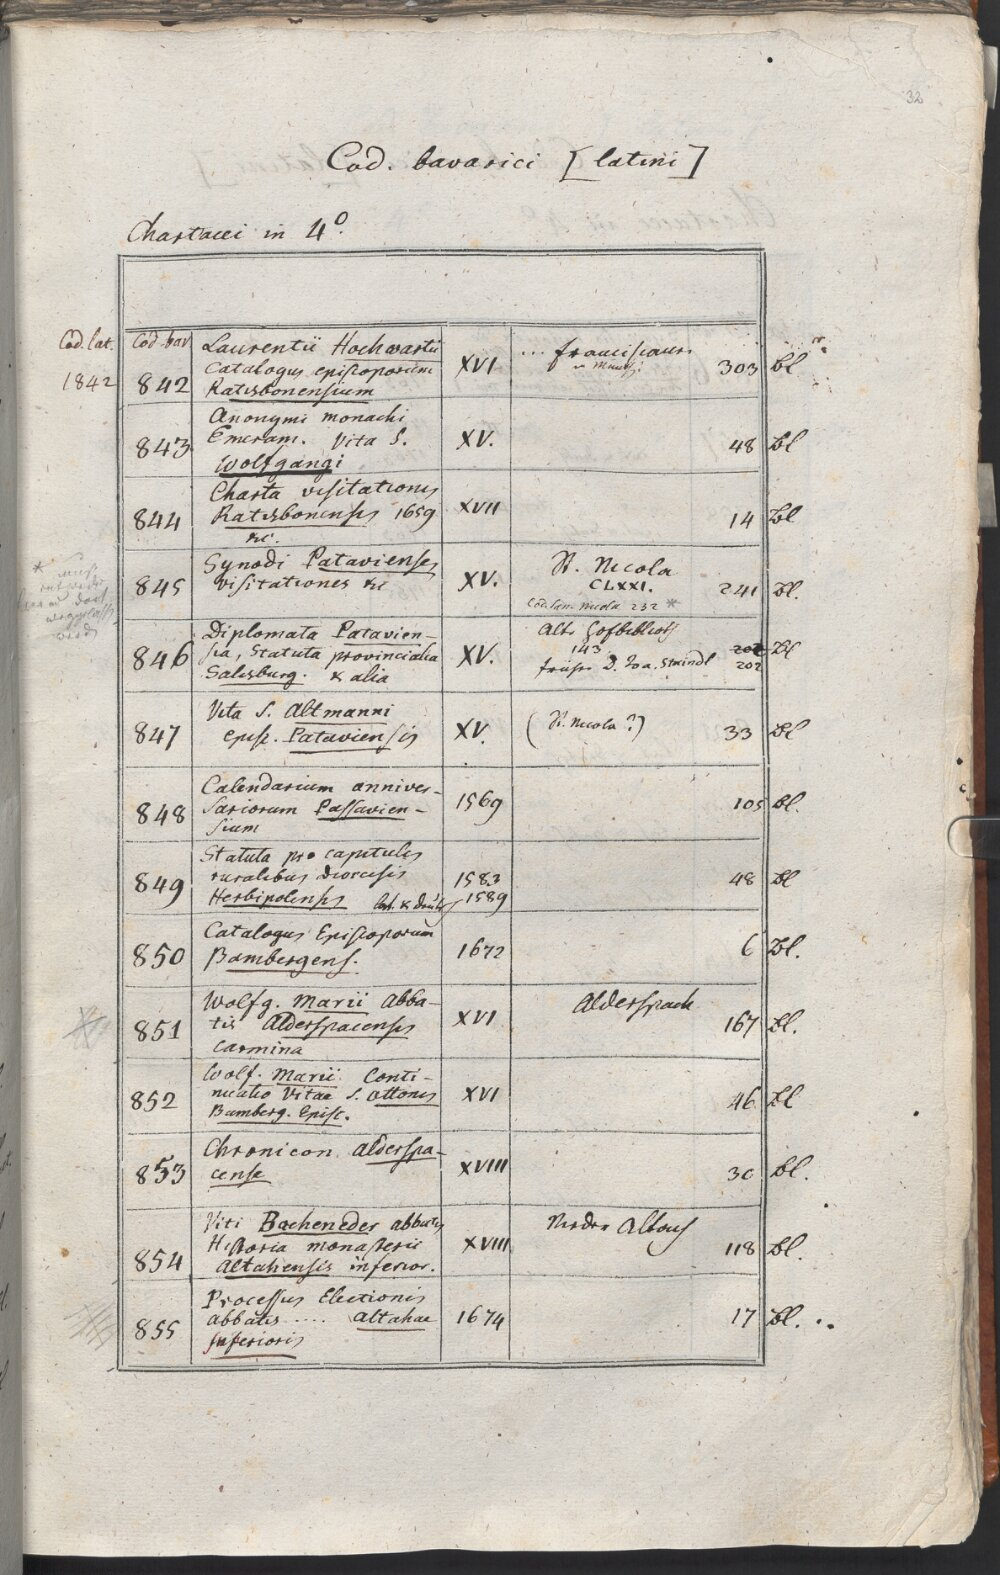 32
Cod. bavarici [latini]
Chartacei in 4°.
Cod. lat. Cod. bav. Laurentii Hochwartii
1842 842 Catalogus episcoporum XVI ... franciscaner 303 bl
Ratisbonensium
Anonymi monachi
843 Emeram. Vita S. XV. 48 bl
Wolfgangi
Charta visitationis
844 Ratisbonensis 1659 XVII 14 bl
rc.
Synodi Pataviensis St. Nicola
845 visitationes rc XV. CLXXI. 241 bl.
Cod. lat. Nicola 232 *
Diplomata Patavien- Alte Hofbiblioth
846 sia, Statuta provincialia XV. 143 202 bl
Salisburg. & alia früher D. Joa. Staindl 202
Vita S. Altmanni
847 episc. Pataviensis XV. (St. Nicola?) 33 bl
Calendarium anniver-
848 sariorum Passavien- 1569 105 bl.
sium
Statuta pro capitulis
849 ruralibus dioecesis 1583 48 bl
Herbipolensis 1589
Catalogus Episcoporum
850 Bambergens. 1672 6 bl.
Wolfg. Marii Abba- Alderspach
851 tis Alderspacensis XVI 167 bl.
Carmina
Wolf. Marii Conti-
852 nuatio Vitae S. Ottonis XVI 46 bl
Bamberg. Episc.
Chronicon alderspa-
853 cense XVIII 30 bl.
Viti Bacheneder abbatis Nieder Altaich
854 Historia monasterii XVIII 118 bl.
Altahensis inferior.
Processus Electionis
855 abbatis .... Altahae 1674 17 bl. ..
Inferioris